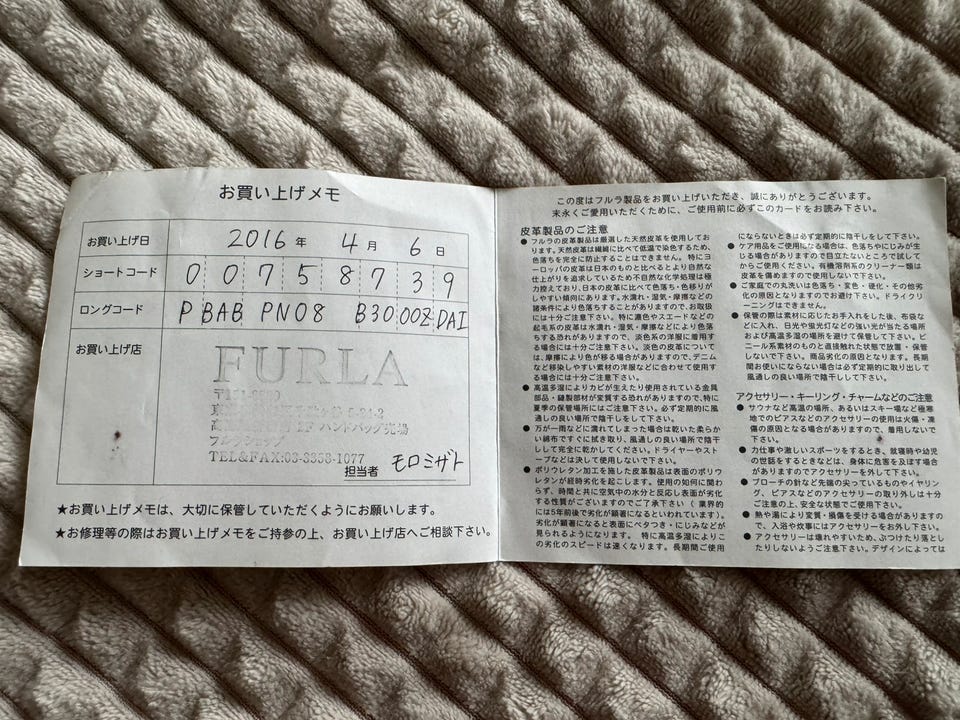 お買い上げメモ
お買い上げ日 2016 年 4 月 6 日
ショートコード 0 0 7 5 8 7 3 9
ロングコード PBAB PN08 B30 00Z DAI
お買い上げ店
FURLA
2F ハンドバッグ売場
フルラショップ
TEL&FAX:03-3358-1077
担当者 モロミザト
★お買い上げメモは、大切に保管していただくようにお願いします。
★お修理等の際はお買い上げメモをご持参の上、お買い上げ店へご相談下さい。
この度はフルラ製品をお買い上げいただき、誠にありがとうございます。
末永くご愛用いただくために、ご使用前に必ずこのカードをお読み下さい。
皮革製品のご注意
● フルラの皮革製品は厳選した天然皮革を使用してお
ります。天然皮革は繊維に比べて低温で染色するため、
色落ちを完全に防止することはできません。特にヨ
ーロッパの皮革は日本のものと比べるとより自然な仕
上がりを追求しているため不自然な化学処理は極
力控えており、日本の皮革に比べて色落ち・色移りが
しやすい傾向にあります。水濡れ・湿気・摩擦などの
諸条件により色落ちすることがありますので、お取扱
には十分ご注意下さい。特に濃色やスエードなどの
起毛系の皮革は水濡れ・湿気・摩擦などにより色落
ちする恐れがありますので、淡色系の洋服に着用す
る場合は十分ご注意下さい。淡色の皮革について
は、摩擦により色が移る場合がありますので、デニム
など移染しやすい素材の洋服などに合わせて使用す
る場合には十分ご注意下さい。
● 高温多湿によりカビが生えたり使用されている金具
部品・縫製部材が変質する恐れがありますので、特に
夏季の保管場所にはご注意下さい。必ず定期的に風
通しの良い場所で陰干しをして下さい。
● 万が一雨などに濡れてしまった場合は乾いた柔らか
い綿布ですぐに拭き取り、風通しの良い場所で陰干
しして完全に乾かしてください。ドライヤーやスト
ーブなどは決して使用しないで下さい。
● ポリウレタン加工を施した皮革製品は表面のポリウ
レタンが経時劣化を起こします。使用の如何に関わ
らず、時間と共に空気中の水分と反応し表面が劣化
する性質がございますのでご了承下さい（業界的
には5年前後で劣化が顕著になるといわれています）。
劣化が顕著になると表面にベタつき・にじみなどが
見られるようになります。特に高温多湿によりこ
の劣化のスピードは速くなります。長期間ご使用
にならないときは必ず定期的に陰干しをして下さい。
● ケア用品をご使用になる場合は、色落ちやにじみが生
じる場合がありますので目立たないところで試して
からご使用ください。有機溶剤系のクリーナー類は
皮革を傷めますので使用しないで下さい。
● ご家庭での丸洗いは色落ち・変色・硬化・その他劣
化の原因となりますのでお避け下さい。ドライクリ
ーニングはできません。
● 保管の際は素材に応じたお手入れをした後、布袋な
どに入れ、日光や蛍光灯などの強い光が当たる場所
および高温多湿の場所を避けて保管して下さい。ビ
ニール系素材のものと直接触れた状態で放置・保管
しないで下さい。商品劣化の原因となります。長期
間お使いにならない場合は必ず定期的に取り出して
風通しの良い場所で陰干しして下さい。
アクセサリー・キーリング・チャームなどのご注意
● サウナなど高温の場所、あるいはスキー場など極寒
地でのピアスなどのアクセサリーの使用は火傷・凍
傷の原因となる場合がありますので、着用しないで
下さい。
● 力仕事や激しいスポーツをするとき、就寝時や幼児
の世話をするときなどは、身体に危害を及ぼす場合
がありますのでアクセサリーを外して下さい。
● ブローチの針など先端の尖っているものやイヤリン
グ、ピアスなどのアクセサリーの取り外しは十分
ご注意の上、安全な状態でご使用下さい。
● 熱や湯により変質・損傷を受ける場合がありますの
で、入浴や炊事にはアクセサリーをお外し下さい。
● アクセサリーは壊れやすいため、ぶつけたり落とし
たりしないようご注意下さい。デザインによっては